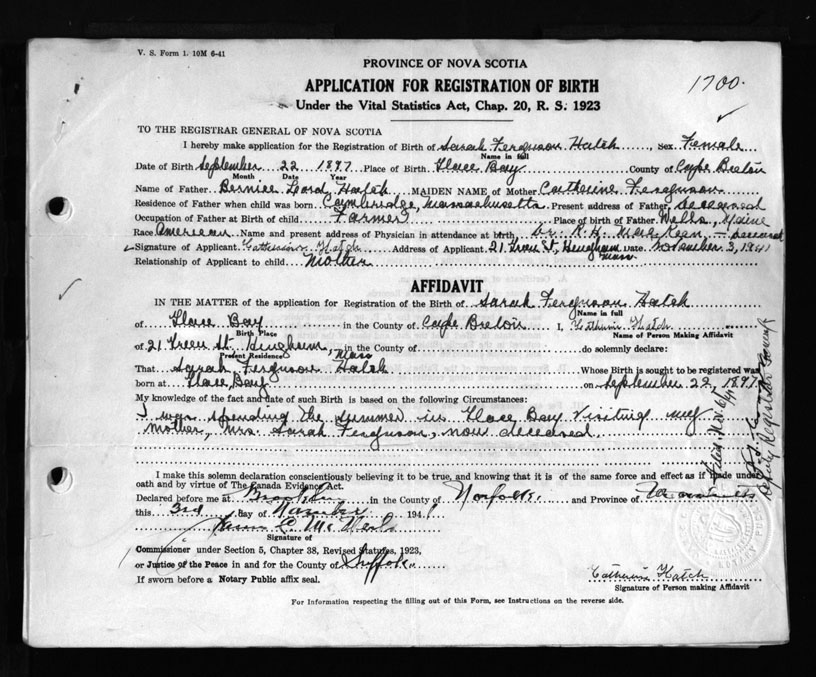 V. S. Form 1. 10M 6-41
PROVINCE OF NOVA SCOTIA
APPLICATION FOR REGISTRATION OF BIRTH
1700.
Under the Vital Statistics Act, Chap. 20, R. S. 1923
TO THE REGISTRAR GENERAL OF NOVA SCOTIA
I hereby make application for the Registration of Birth of Sarah Ferguson Hatch, Sex Female
Name in full
Date of Birth September 22 1897 Place of Birth Glace Bay County of Cape Breton
Month Day Year
Name of Father Bernice Hatch MAIDEN NAME of Mother Catherine Ferguson
Residence of Father when child was born Cambridge, Massachusetts. Present address of Father, deceased
Occupation of Father at Birth of child Farmer Place of birth of Father Wells, Maine
Race American Name and present address of Physician in attendance at birth, Dr. - deceased
Signature of Applicant Catherine Hatch Address of Applicant 21 St, Hingham Mass Date November 3, 1941
Relationship of Applicant to child Mother
AFFIDAVIT
IN THE MATTER of the application for Registration of the Birth of Sarah Ferguson Hatch
Name in full
of Glace Bay in the County of Cape Breton I, Catherine Hatch
Birth Place Name of Person Making Affidavit
of 21 St. Hingham, Mass in the County of do solemnly declare:
Present Residence
That Sarah Ferguson Hatch Whose Birth is sought to be registered was
born at Glace Bay on September 22, 1897.
My knowledge of the fact and date of such Birth is based on the following Circumstances:
I was spending the summer in Glace Bay visiting my
mother, Mrs. Sarah Ferguson, now deceased.
I make this solemn declaration conscientiously believing it to be true, and knowing that it is of the same force and effect as if made under
oath and by virtue of The Canada Evidence Act.
Declared before me at in the County of Norfolk and Province of Massachusetts
this 3rd Day of November 1941
Signature of
Commissioner under Section 5, Chapter 38, Revised Statutes, 1923,
or Justice of the Peace in and for the County of Suffolk
If sworn before a Notary Public affix seal.
Catherine Hatch
Signature of Person making Affidavit
For Information respecting the filling out of this Form, see Instructions on the reverse side.
Deputy Registrar General